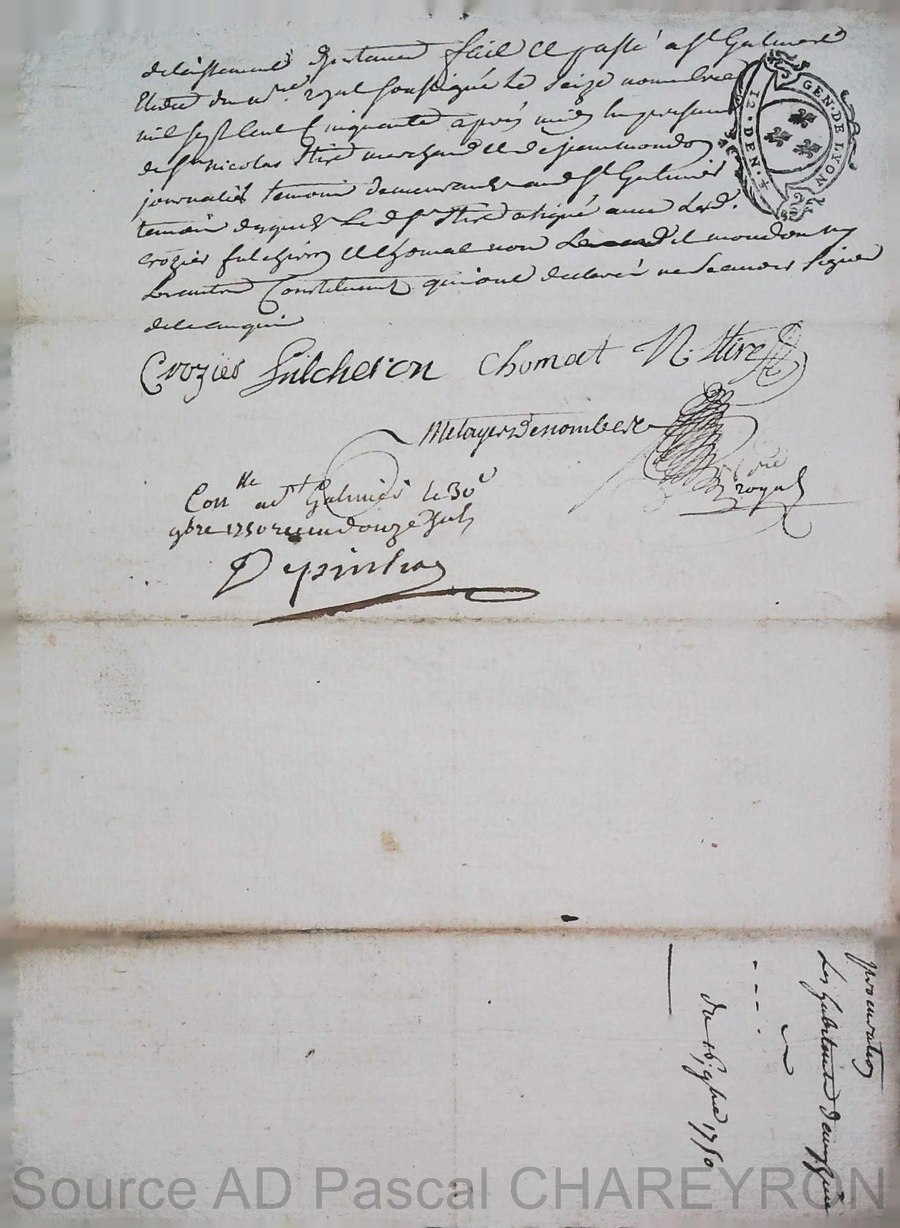 fait et passé a St Galmier
Etude du nre royal soussigné le seize novembre
mil sept cent Cinquante après midy en presence
de Sr nicolas Stire marchand et de jean mondon
journalier temoins demeurants aud St Galmier
temoin desquels le d. Sr Stire a signé avec lesd.
crozier fulchiron et Chomat non led mondon ny
Constituants qui ont declaré ne Scavoir signer
de ce enquis
Crozier fulcheron Chomat N. Stire
nore
royal
Conlle a St Galmier le 30e
9bre 1750 receu douze sols
GEN. DE LYON
12. DEN.
procuration
Les habitants
du 16 9bre 1750
Source AD Pascal CHAREYRON